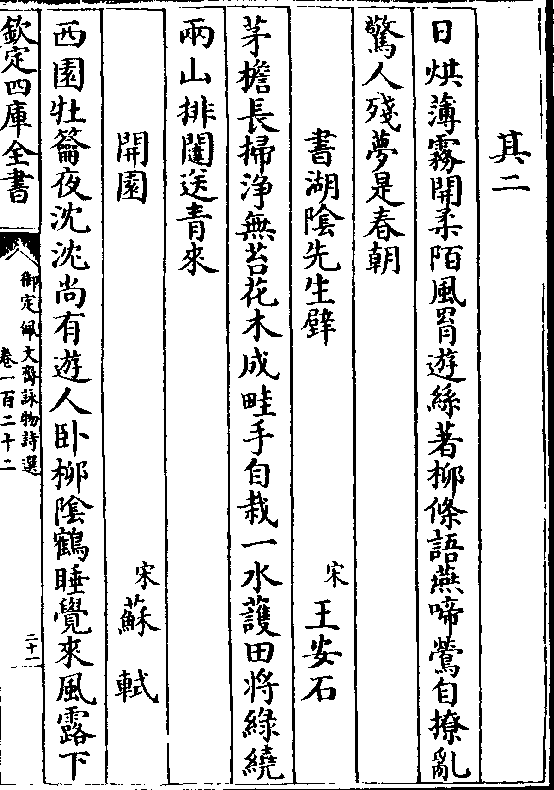 其二
日烘薄霧開柔陌風罥遊絲著柳條語燕啼鶯自撩亂
驚人殘夢是春朝
書湖陰先生壁 宋 王安石
茅檐長掃浄無苔花木成畦手自栽一水護田将綠繞
兩山排闥送青來
開園 宋 蘇軾
西園牡籥夜沈沈尚有遊人卧柳陰鶴睡覺來風露下
欽定四庫全書 御定佩文齋詠物詩選 卷一百二十二 二十一